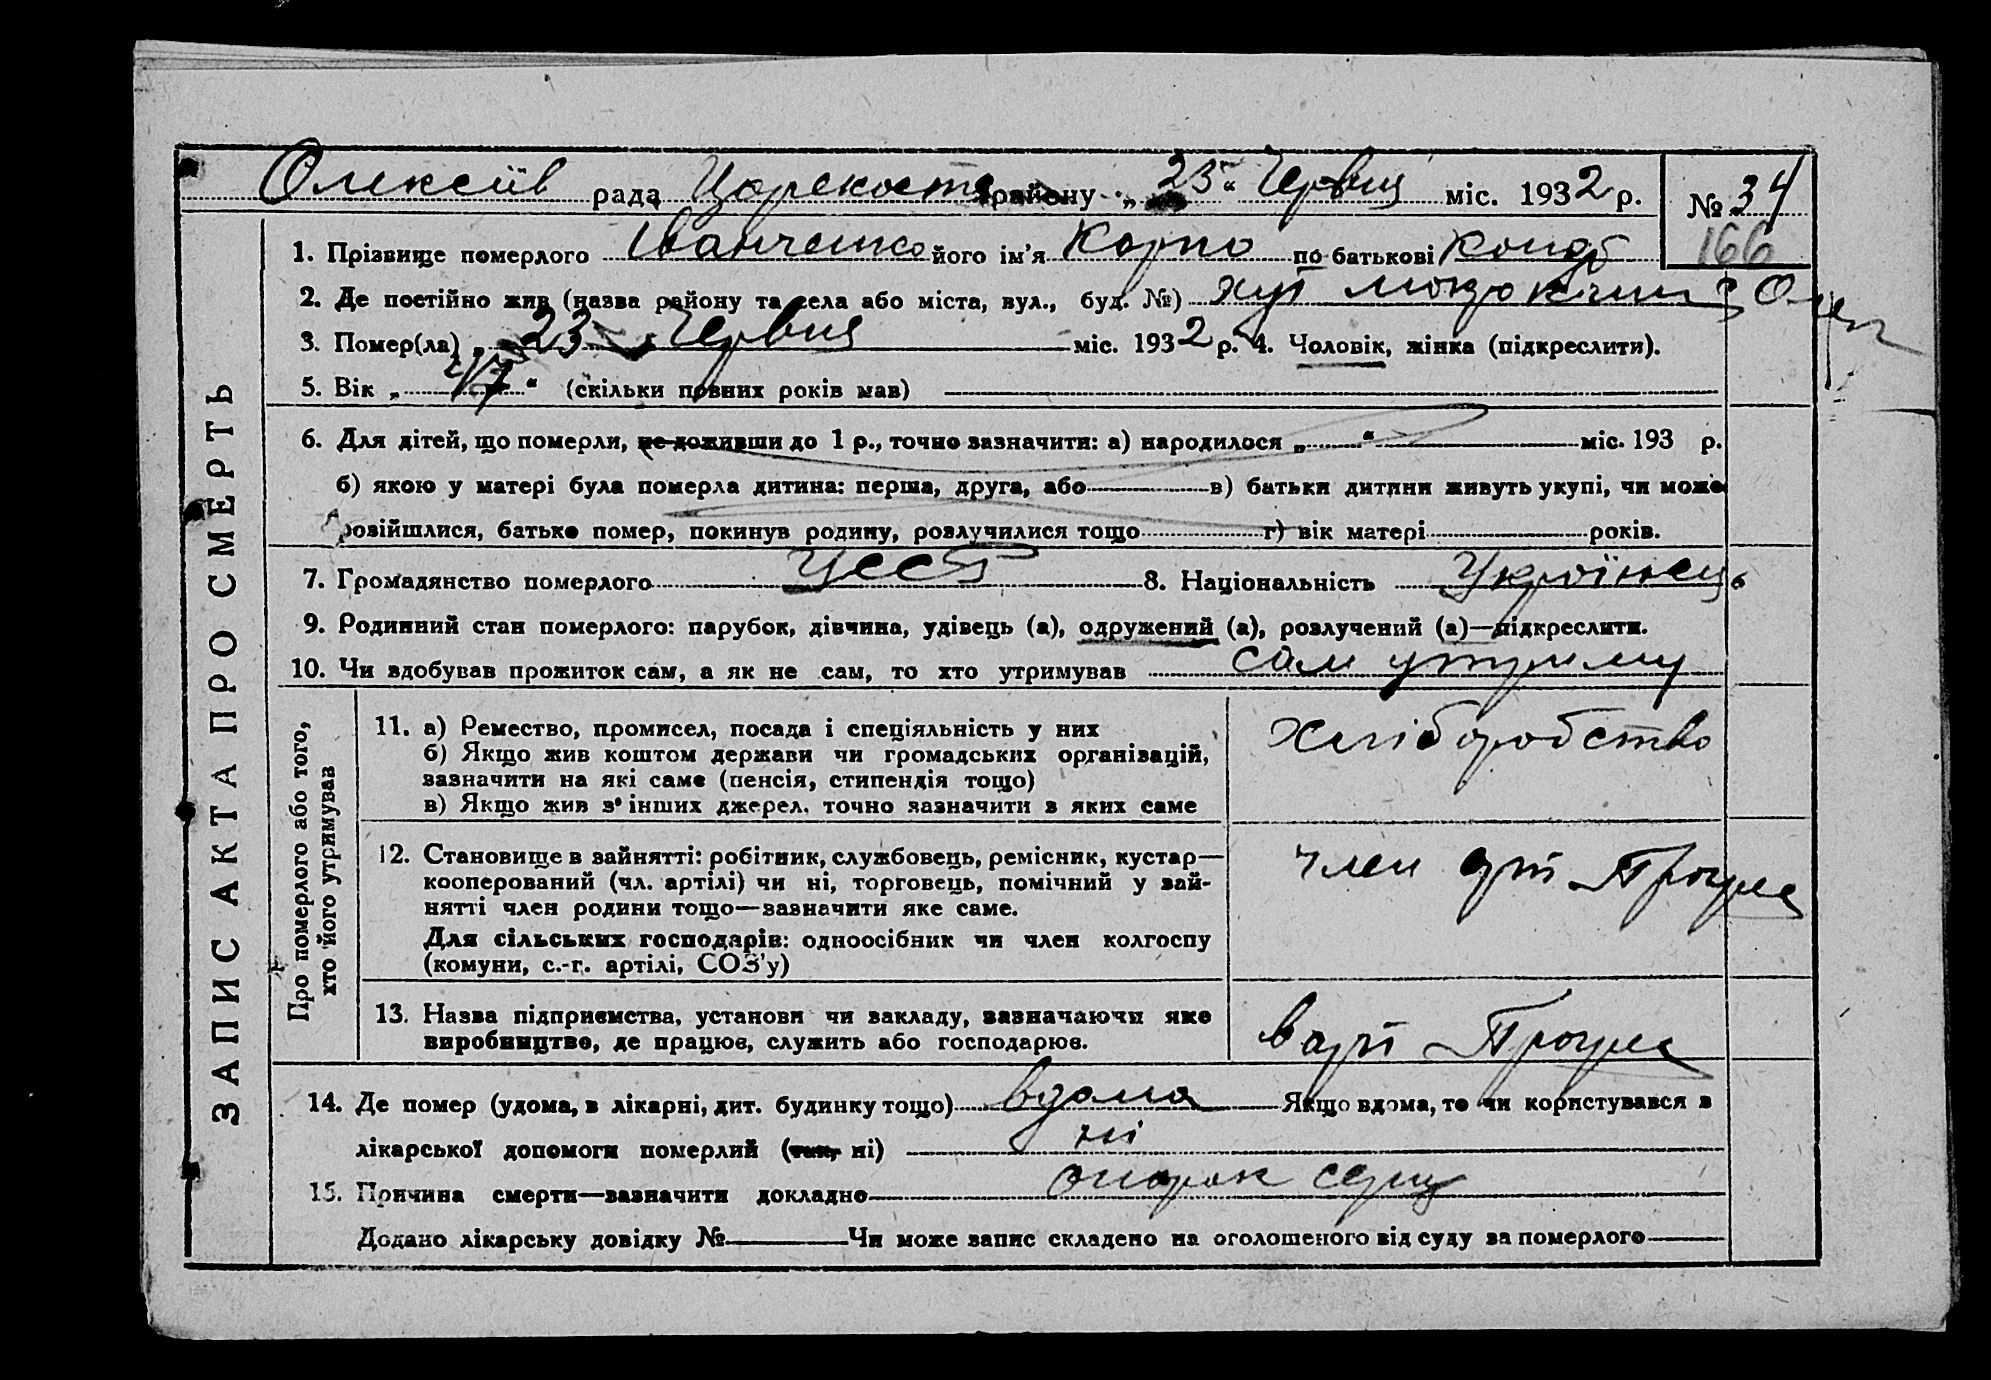 Олексіїв рада Царекост району „23“ Червця міс. 1932 р. № 34
166
1. Прізвище померлого Іванченко його ім'я Карпо по батькові Конд
2. Де постійно жив (назва району та села або міста, вул., буд. №) хут
3. Помер(ла) „23 Червця міс. 1932 р. 4. Чоловік, жінка (підкреслити).
5. Вік „47“ (скільки повних років мав)
6. Для дітей, що померли, не доживши до 1 р., точно зазначити: а) народилося „ “ міс. 193 р.
б) якою у матері була померла дитина: перша, друга, або в) батьки дитини живуть укупі, чи може
розійшлися, батько помер, покинув родину, розлучилися тощо г) вік матері років.
7. Громадянство померлого УССР 8. Національність Українець
9. Родинний стан померлого: парубок, дівчина, удівець (а), одружений (а), розлучений (а)—підкреслити.
10. Чи здобував прожиток сам, а як не сам, то хто утримував сам утриму
ЗАПИС АКТА ПРО СМЕРТЬ
Про померлого або того,
хто його утримував
11. а) Ремество, промисел, посада і спеціяльність у них
б) Якщо жив коштом держави чи громадських організацій,
зазначити на які саме (пенсія, стипендія тощо)
в) Якщо жив з інших джерел, точно зазначити з яких саме
хліборобство
12. Становище в зайнятті: робітник, службовець, ремісник, кустар—
кооперований (чл. артілі) чи ні, торговець, помічний у зай-
нятті член родини тощо—зазначити яке саме.
Для сільських господарів: одноосібник чи член колгоспу
(комуни, с.-г. артілі, СОЗ'у)
член арт Прогрес
13. Назва підприємства, установи чи закладу, зазначаючи яке
виробництво, де працює, служить або господарює.
в арт Прогрес
14. Де помер (удома, в лікарні, дит. будинку тощо) вдома Якщо вдома, то чи користувався з
лікарської допомоги померлий (так, ні) ні
15. Причина смерти—зазначити докладно опорок серця
Додано лікарську довідку № Чи може запис складено на оголошеного від суду за померлого